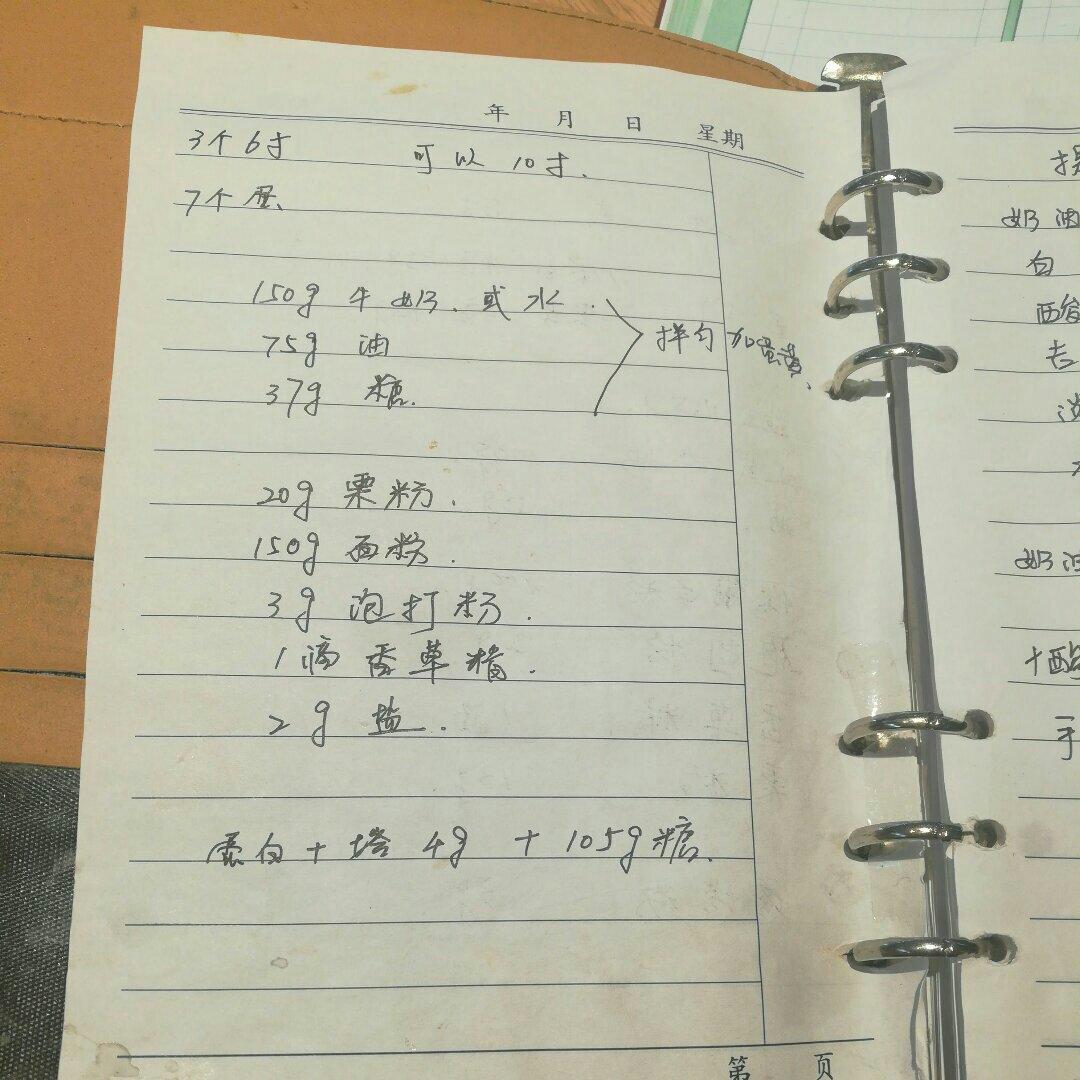 年 月 日 星期
3个6寸 可以10寸.
7个蛋、
150g 牛奶.或水.
75g 油
拌匀 加蛋黄、
37g 糖.
20g 栗粉.
150g 面粉.
3g 泡打粉.
1滴香草精.
2g 盐.
蛋白+塔4g + 105g糖.
第 页
奶油
白
西
去
奶油